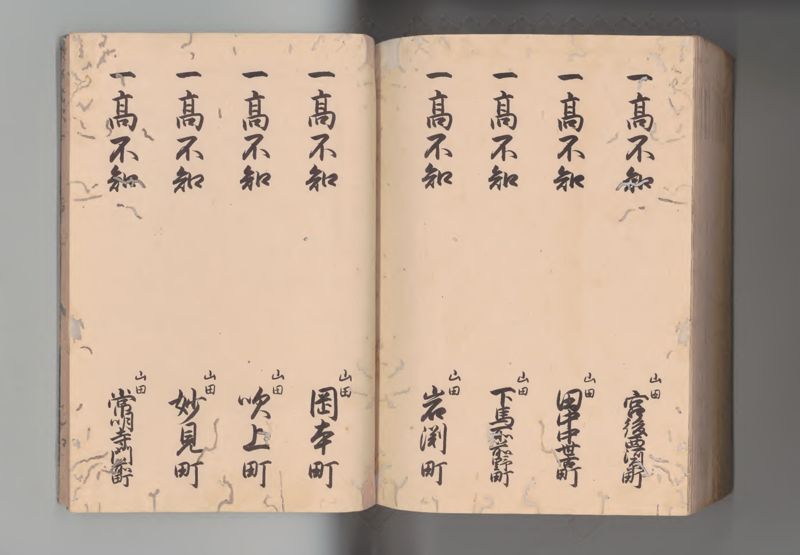 一高不知
山田
宮後西河原町
一高不知
山田
田中中世古町
一高不知
山田
下馬所前野町
一高不知
山田
岩渕町
一高不知
山田
岡本町
一高不知
山田
吹上町
一高不知
山田
妙見町
一高不知
山田
常明寺門前町